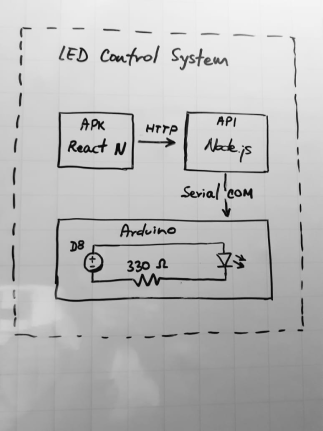 LED Control System
APK
React N
HTTP
API
Node.js
Serial COM
Arduino
D8
+
-
330 Ω